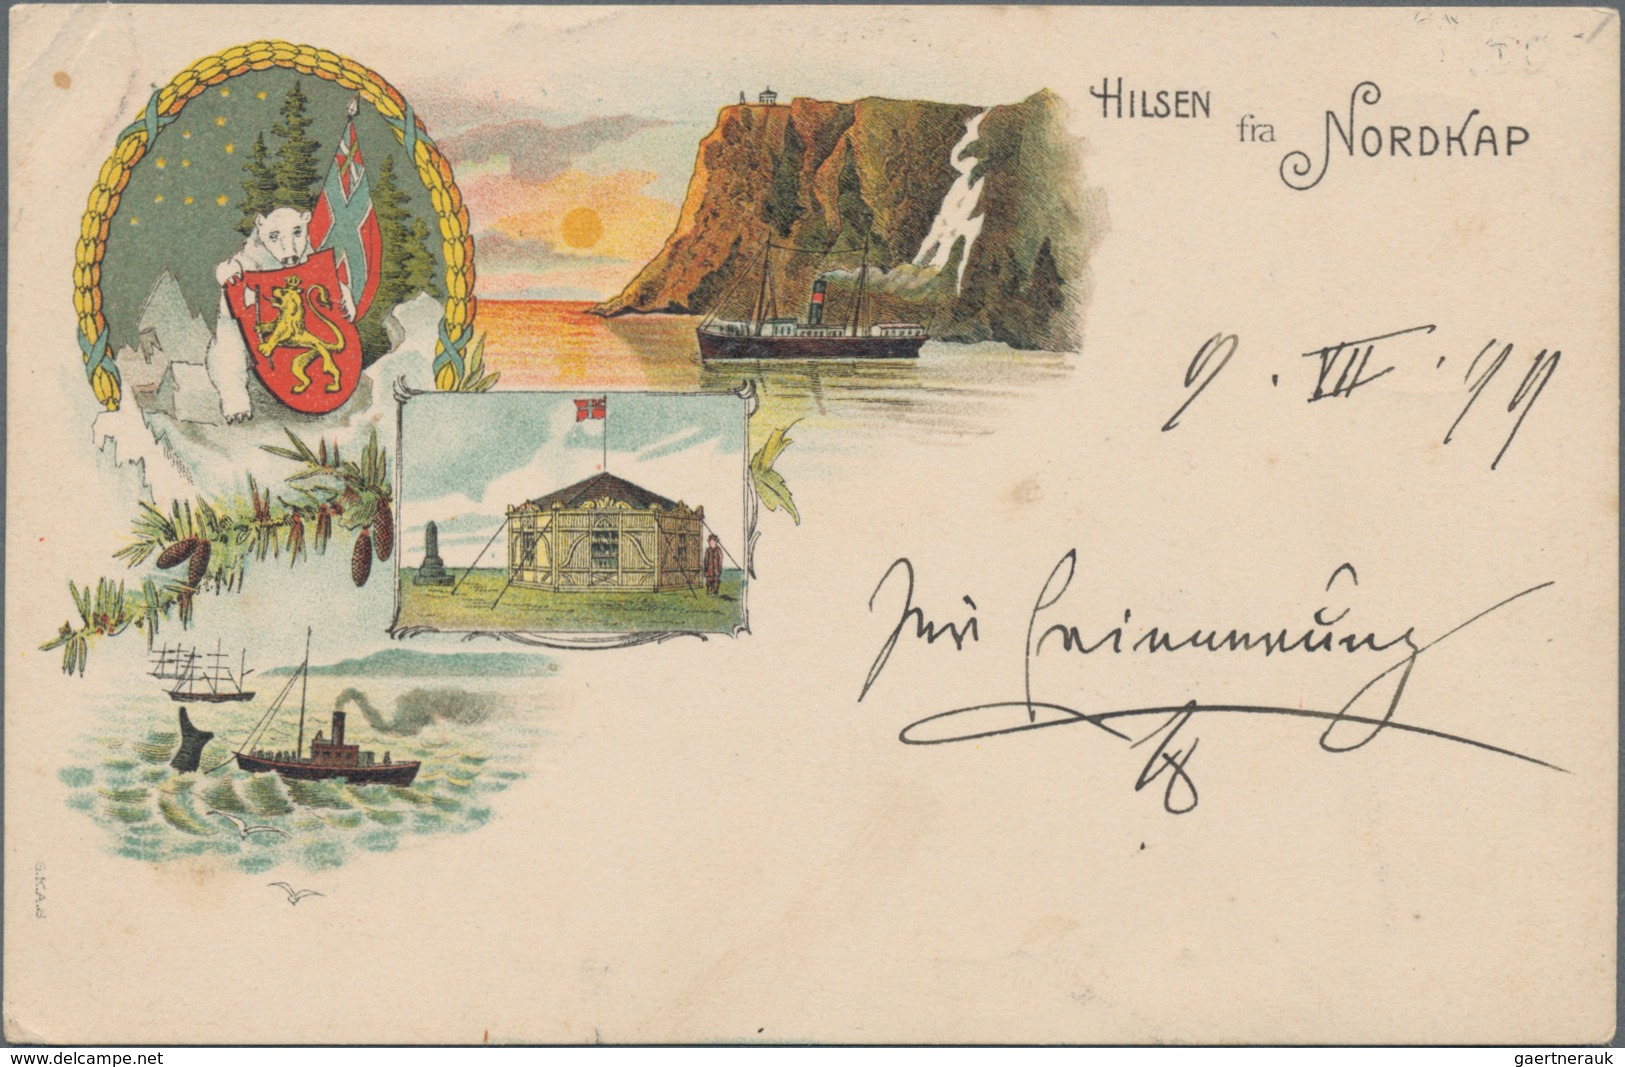 HILSEN fra NORDKAP
9. VII. 99
Zur Erinnerung
S.K.A.S.
www.delcampe.net
gaertnerauk